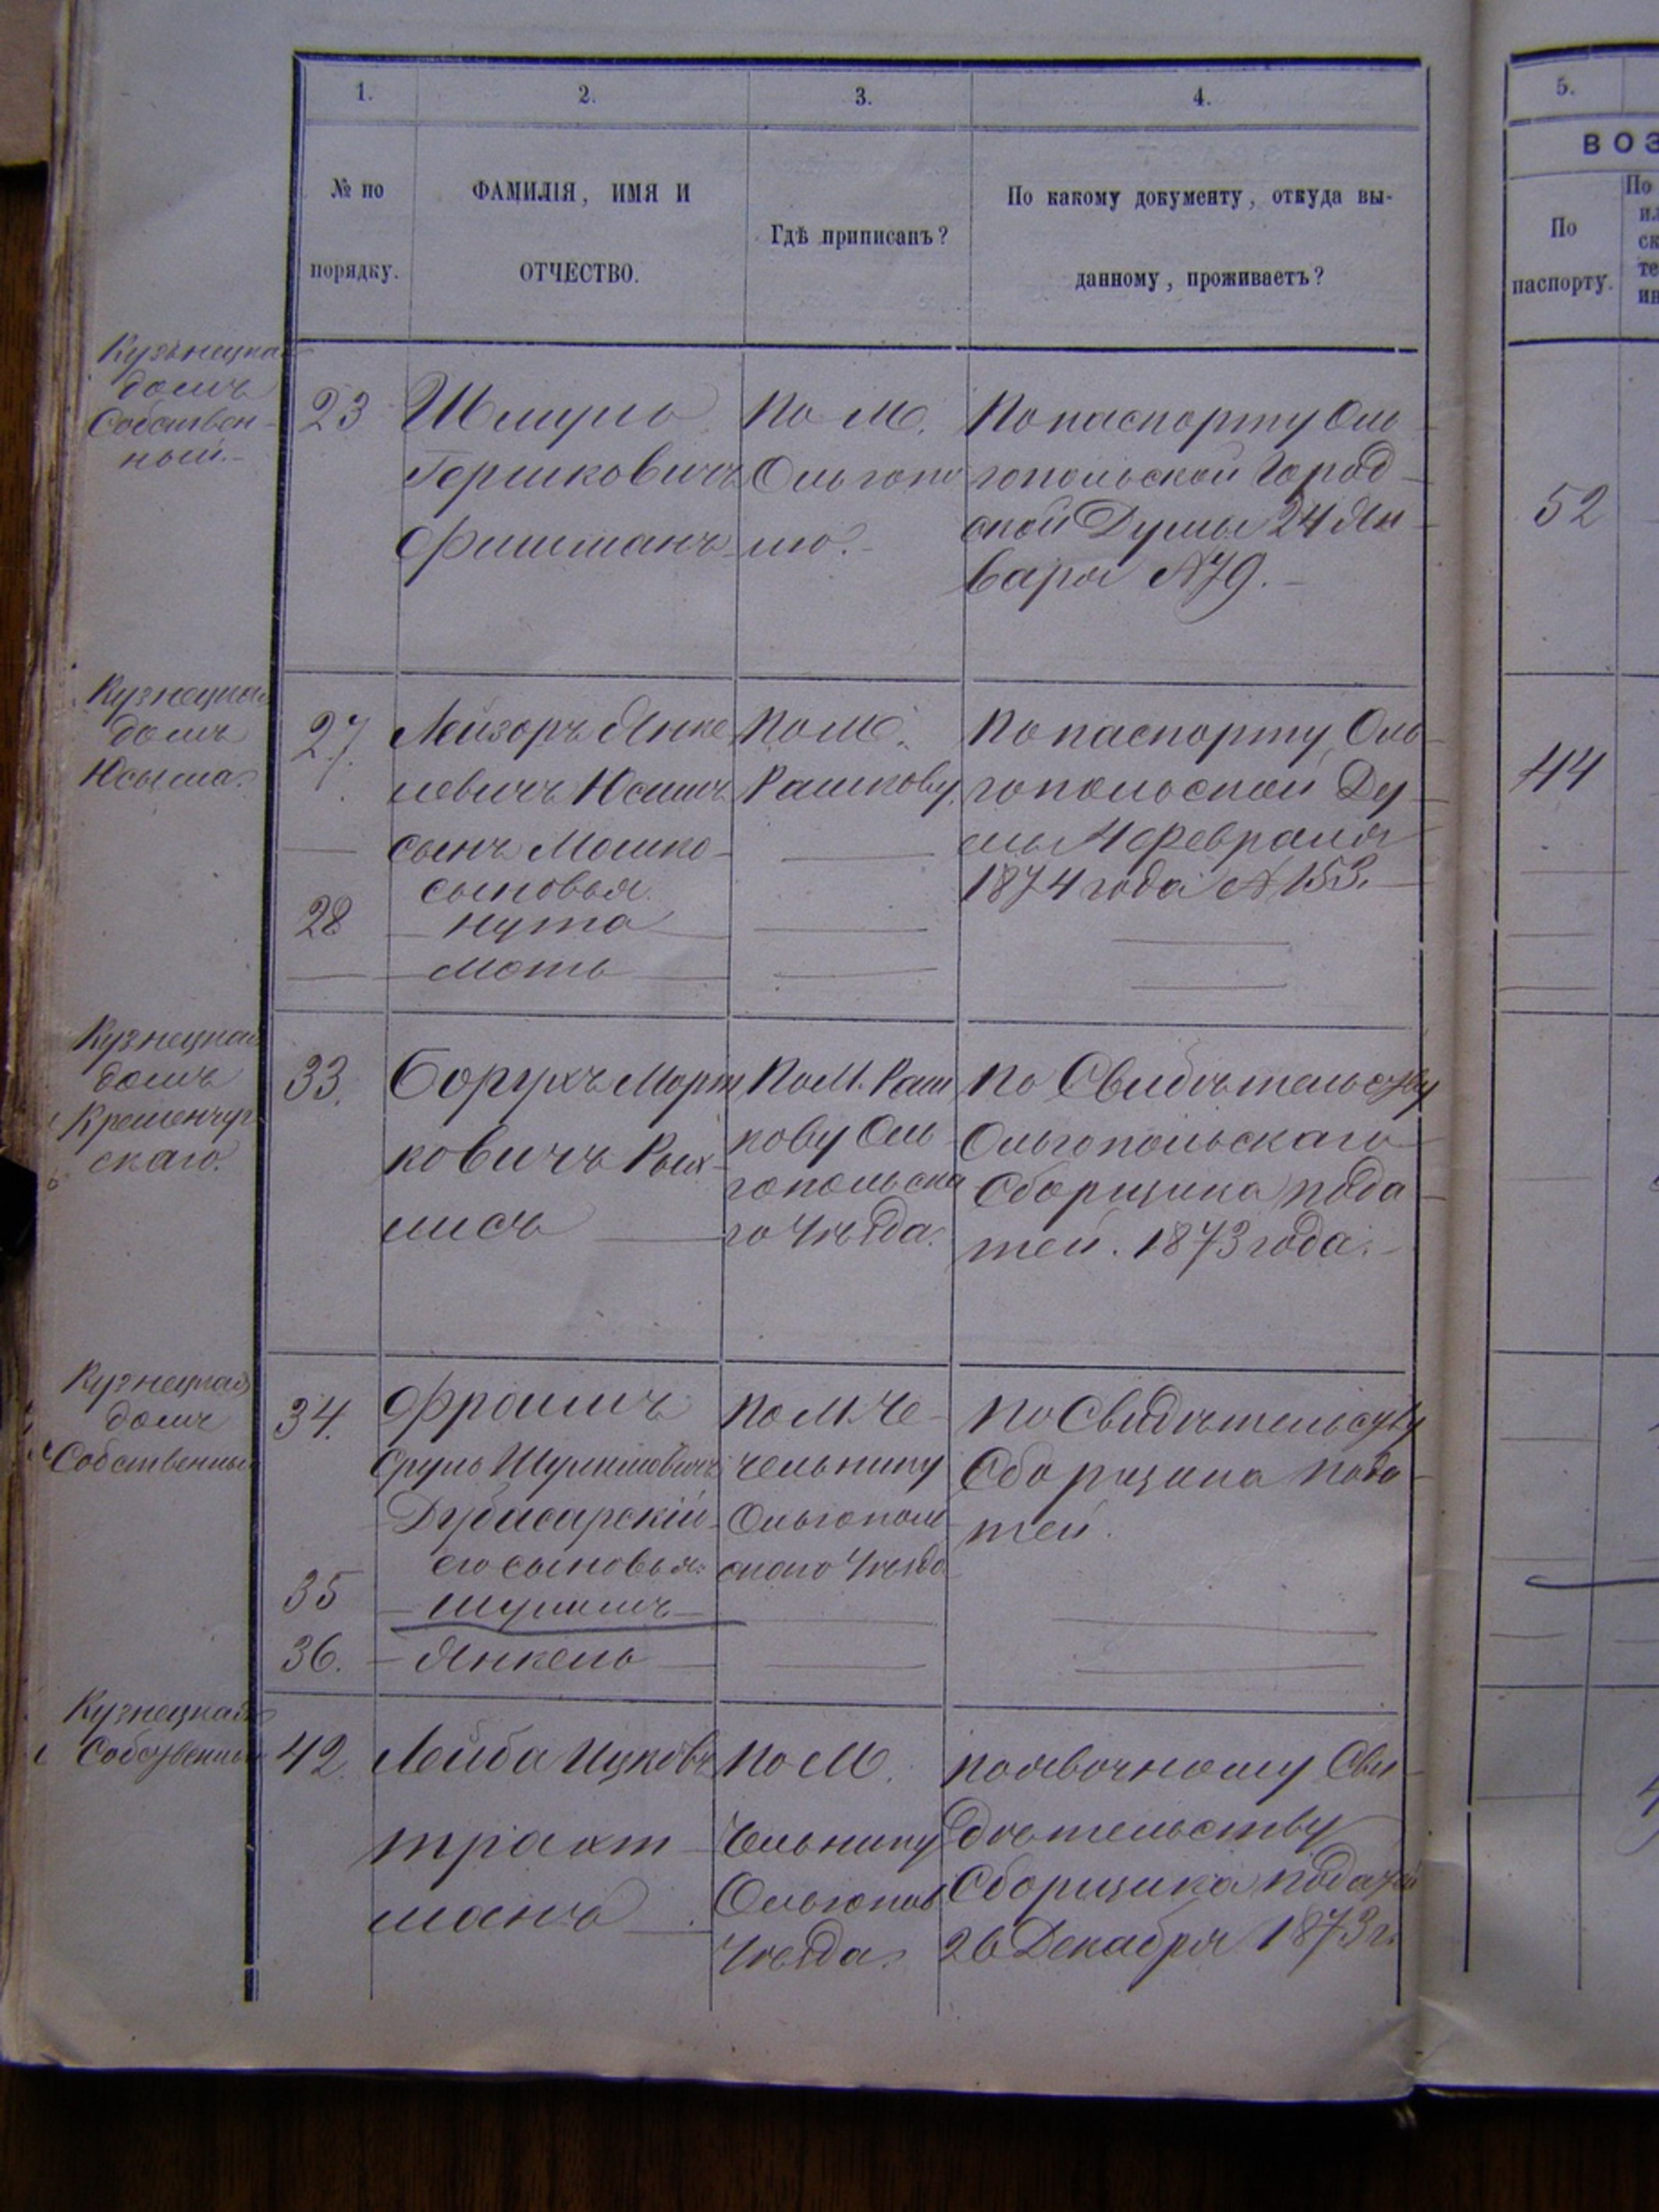 1. 2. 3. 4. 5.
ВОЗ
№ по
порядку.
ФАМИЛІЯ, ИМЯ И
ОТЧЕСТВО.
Гдѣ приписанъ?
По какому документу, откуда вы-
данному, проживаетъ?
По
паспорту.
По
ил
ск
те
ин
Кузнецкая
домъ
Собствен-
ный.-
23
Шмуль
Гершковичъ
Фишманъ
По М.
Ольгопо
лю.-
По паспорту Оль-
гопольской Город-
ской Думы 24 Ян-
варя №79.-
52
Кузнецкая
домъ
27.
Лейзоръ Янке
левичъ
сынъ Мошко-
сыновья
28
Нута
Моть
По М.
Рашкову.
По паспорту Оль-
гопольской Ду-
мы 4 Февраля
1874 года №153.
44
Кузнецкая
домъ
Кременчуг-
скаго.
33.
Борухъ Морт
ковичъ Рых-
лисъ
По М. Раш
кову Оль-
гопольска
го Уѣзда.
По Свидѣтельству
Ольгопольскаго
Сборщика пода-
тей. 1873 года.-
Кузнецкая
домъ
Собственный
34.
Фроимъ
Сруль
Дубасарскій
его сыновья:
35
36.
Янкель
По М. Че-
чельнику
Ольгополь
скаго Уѣзда
По Свидѣтельству
Сборщика пода-
тей.
Кузнецкая
Собственный
42.
Лейба Ицковъ
Трахт-
манъ
По М.
Чельнику
Ольгопол
Уѣзда.
По явочному Сви-
дѣтельству
Сборщика податей
26 Декабря 1873 г.